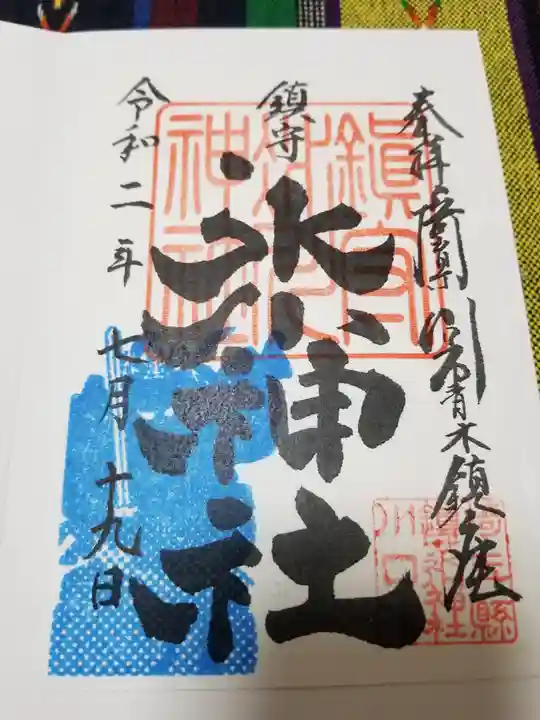 奉拝 埼玉県川口市青木鎮座
鎮守
氷川神社
令和二年 七月十九日
鎮守氷川神社